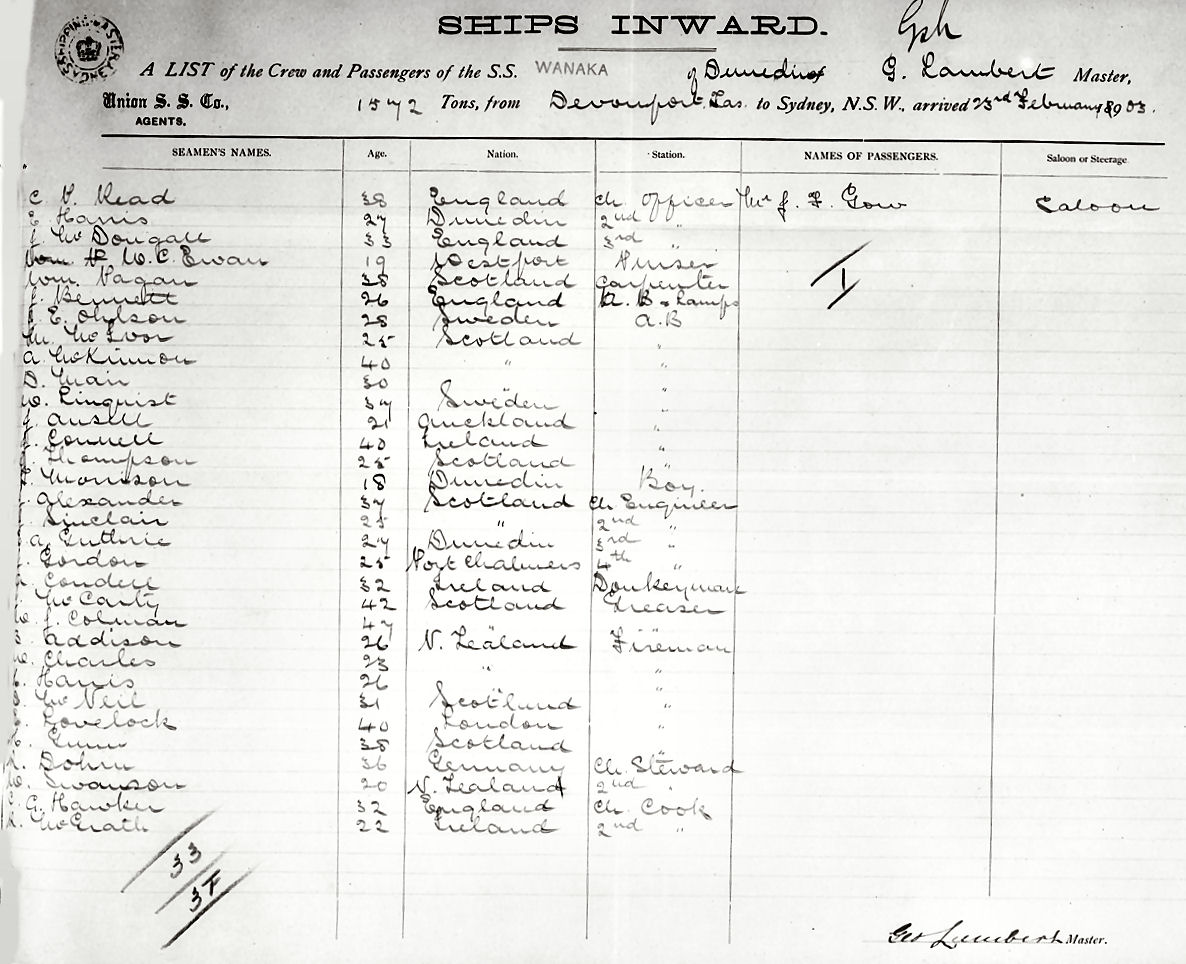 SHIPS INWARD. Gph
A LIST of the Crew and Passengers of the S.S. WANAKA of Dunedin G. Lambert Master,
Union S. S. Co., AGENTS. 1572 Tons, from Devonport, Tas. to Sydney, N.S.W., arrived 23rd February 1903.
SEAMEN'S NAMES. Age. Nation. Station. NAMES OF PASSENGERS. Saloon or Steerage
C. V. Read 38 England Ch. Officer Mr J. F. Gow Saloon
E. Harris 27 Dunedin 2nd "
J. McDougall 33 England 3rd "
W. C. Ewan 19 Westport Purser 1
Wm. Pagan 38 Scotland Carpenter
J. Bennett 26 England A. B & Lamps
E. Ohlson 28 Sweden A. B
M. McIvor 25 Scotland "
A. McKinnon 40 " "
D. Muir 30 "
W. Linquist 37 Sweden "
J. Ansell 21 Auckland "
J. Connell 40 Ireland "
Thompson 25 Scotland "
Morrison 18 Dunedin Boy.
Alexander 37 Scotland Ch. Engineer
Sinclair 25 " 2nd "
A. Guthrie 27 Dunedin 3rd "
Gordon 25 Port Chalmers 4th "
Condell 32 Ireland Donkeyman
McCarty 42 Scotland Greaser
W. J. Colman 47 "
Addison 26 N. Zealand Fireman
Charles 23 " "
Harris 26 " "
McNeil 31 Scotland "
Lovelock 40 London "
Gunn 38 Scotland "
Dohm 36 Germany Ch. Steward
Swanson 20 N. Zealand 2nd "
C. G. Hawker 32 England Ch. Cook
McGrath 22 Ireland 2nd "
33
34
Geo Lambert Master.